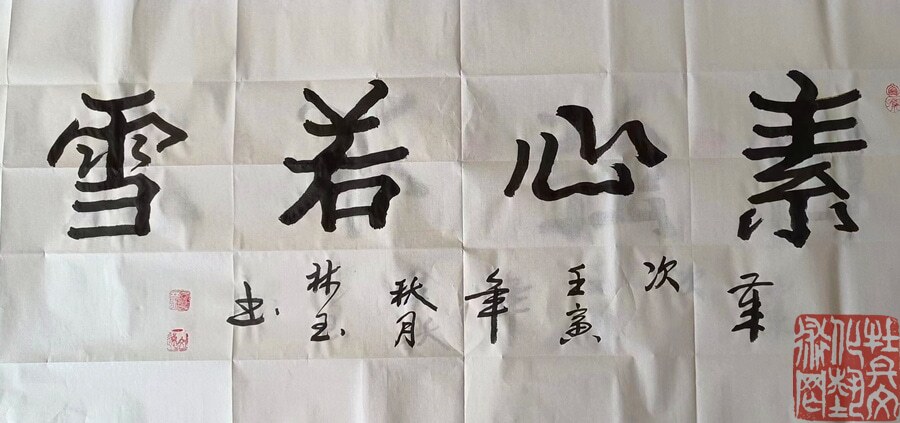 素心若雪
歲次壬寅年秋月林玉书